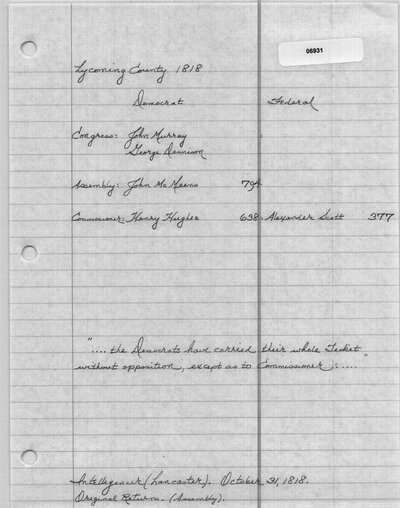 06931
Lycoming County 1818
Democrat Federal
Congress: John Murray
George Denison
Assembly: John McMeens 794
Commissioner: Henry Hughes 638 Alexander Scott 377
".... the Democrats have carried their whole Ticket
without opposition, except as to Commissioner:....."
Intelligencer (Lancaster). October 31, 1818.
Original Returns. (Assembly).